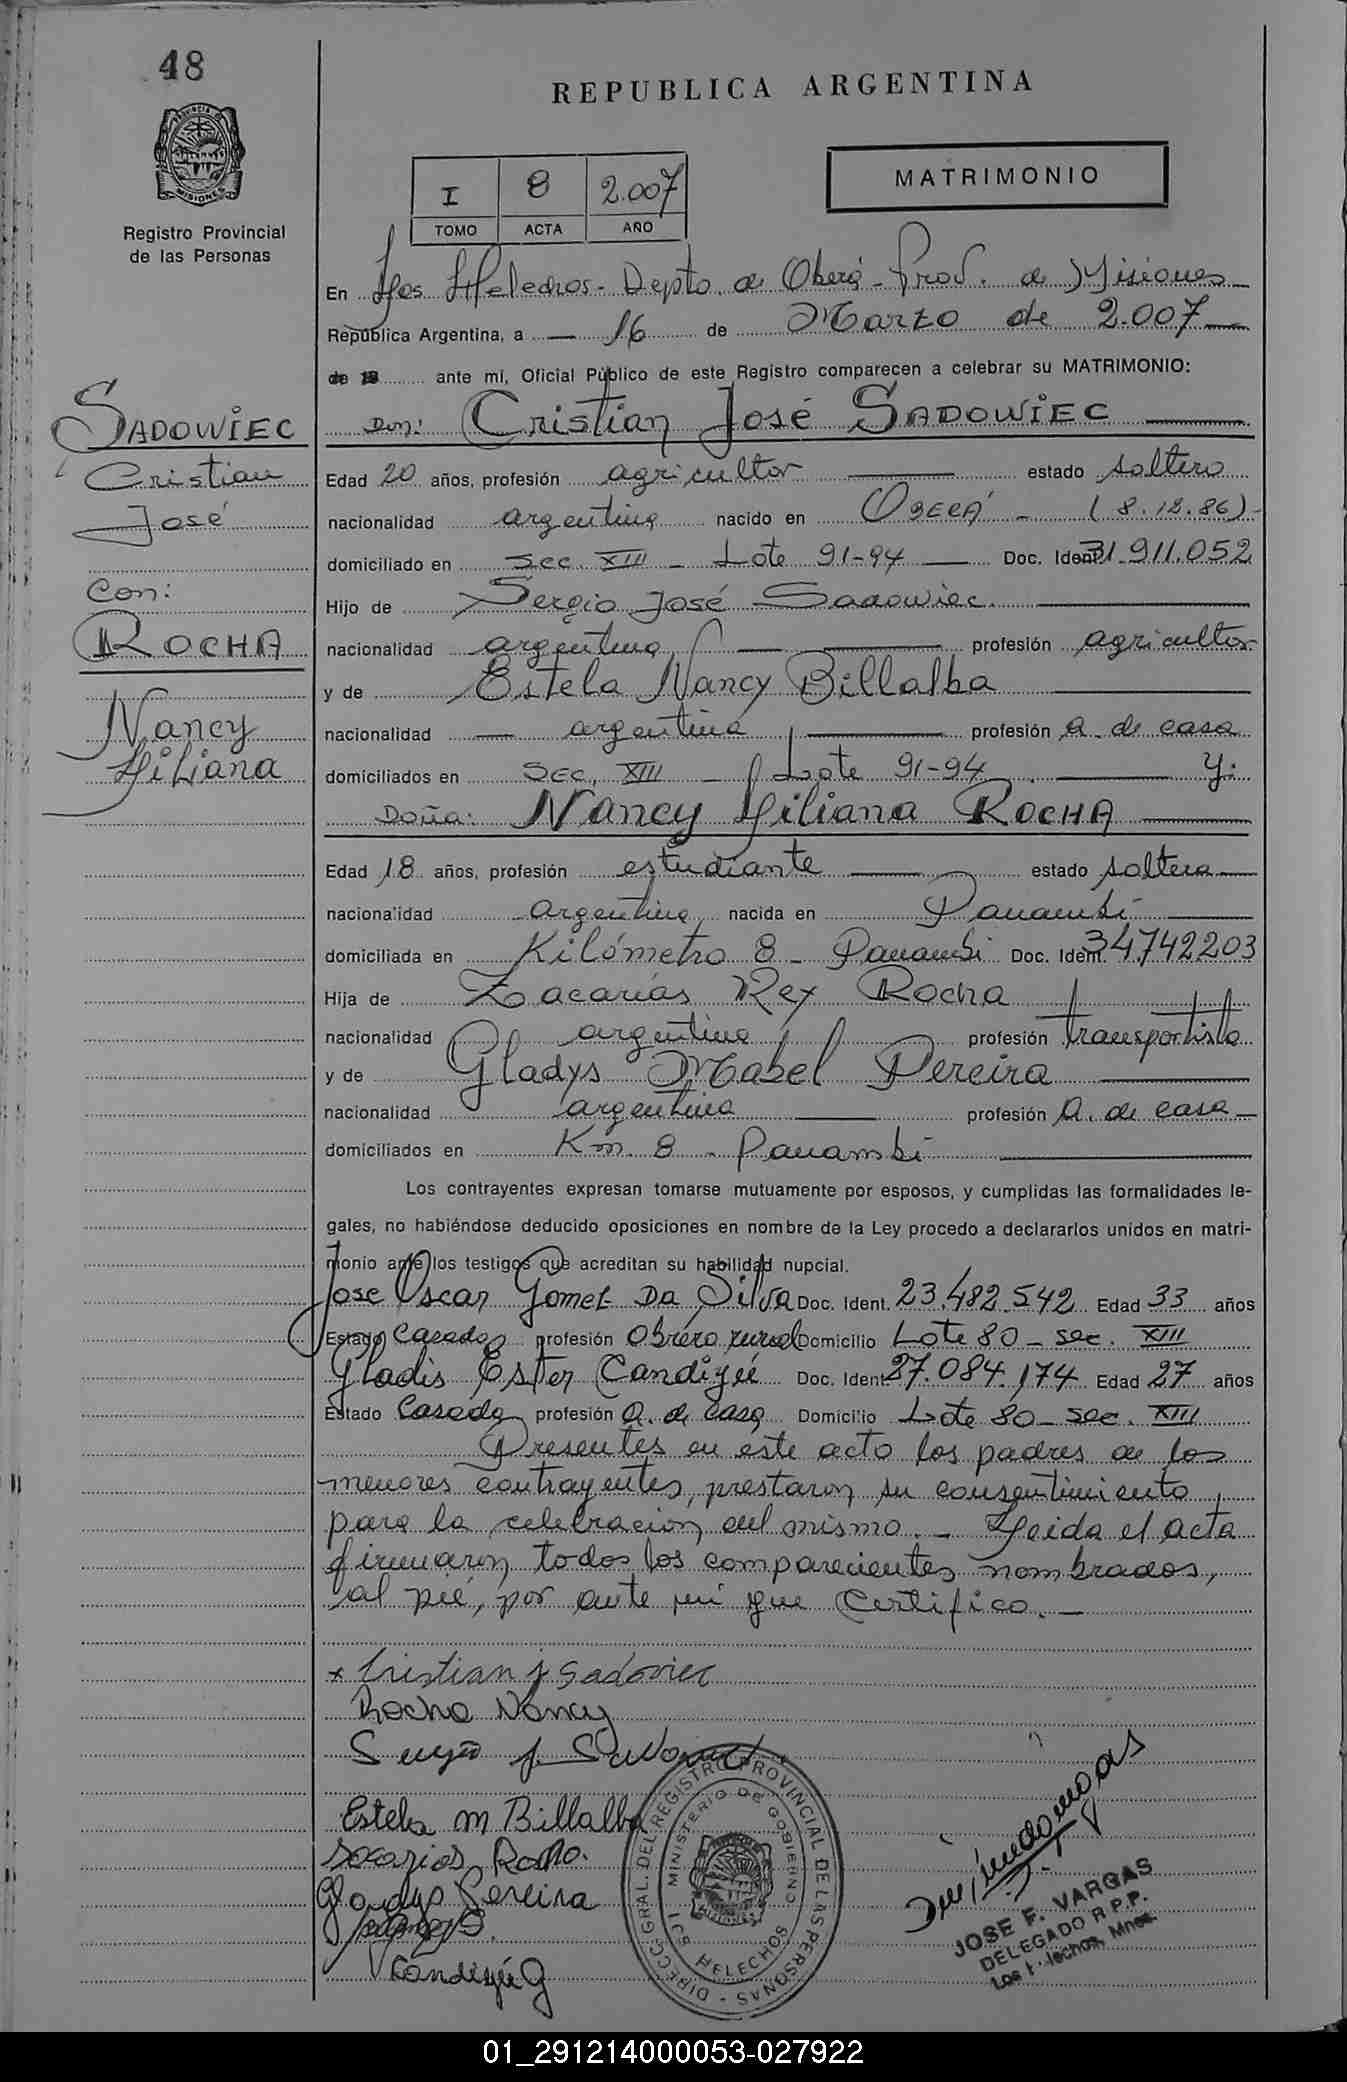 48
REPUBLICA ARGENTINA
PROVINCIA DE MISIONES
Registro Provincial
de las Personas
MATRIMONIO
I 8 2.007
TOMO ACTA AÑO
En Los Helechos - Depto. de Oberá - Prov. de Misiones
República Argentina, a — 16 de Marzo de 2.007 —
de 19 ante mí, Oficial Público de este Registro comparecen a celebrar su MATRIMONIO:
Don: Cristian José SADOWIEC
SADOWIEC
Cristian
José
Con:
ROCHA
Nancy
Liliana
Edad 20 años, profesión agricultor — estado soltero
nacionalidad argentina nacido en OBERÁ - (8.12.86)-
domiciliado en Sec. XIII - Lote 91-94 — Doc. Ident. 31.911.052
Hijo de Sergio José Sadowiec —
nacionalidad argentina — profesión agricultor
y de Estela Nancy Billalba —
nacionalidad — argentina — profesión a. de casa
domiciliados en Sec. XIII - Lote 91-94 — y:
Doña: Nancy Liliana ROCHA —
Edad 18 años, profesión estudiante — estado soltera —
nacionalidad argentina, nacida en Panambí —
domiciliada en Kilómetro 8 - Panambí Doc. Ident. 34742203
Hija de Zacarías Rex Rocha
nacionalidad argentina profesión transportista
y de Gladys Mabel Pereira —
nacionalidad argentina — profesión a. de casa —
domiciliados en Km. 8 - Panambí —
Los contrayentes expresan tomarse mutuamente por esposos, y cumplidas las formalidades le-
gales, no habiéndose deducido oposiciones en nombre de la Ley procedo a declararlos unidos en matri-
monio ante los testigos que acreditan su habilidad nupcial.
José Oscar Gomez Da Silva Doc. Ident. 23.482.542 Edad 33 años
Estado Casado profesión Obrero rural Domicilio Lote 80 - sec. XIII
Gladis Ester Candizéé Doc. Ident. 27.084.174 Edad 27 años
Estado Casada profesión a. de casa Domicilio Lote 80 - sec. XIII
Presentes en este acto los padres de los
menores contrayentes, prestaron su consentimiento
para la celebración del mismo. - Leida el acta
firmaron todos los comparecientes nombrados,
al pié, por ante mi que Certifico. -
x Cristian J Sadowiec
Rocha Nancy
Sergio J. Sadowiec
Estela M Billalba
Socarias Rocho.
Gladys Pereira
DIRECC. GRAL. DEL REGISTRO PROVINCIAL DE LAS PERSONAS
MINISTERIO DE GOBIERNO
MISIONES
HELECHOS
JOSE F. VARGAS
DELEGADO R.P.P.
Los Helechos, Mnes.
01_291214000053-027922